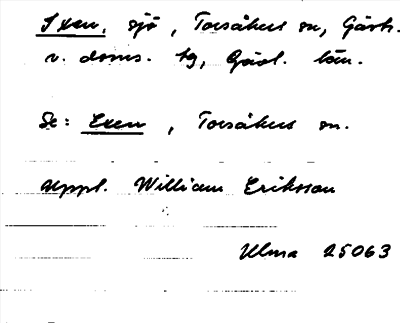 Ixen, sjö, Torsåkers sn, Gästr.
v. doms. tg, Gävl. län.
Se: Exen, Torsåkers sn.
Uppl. William Eriksson
Ulma 25063